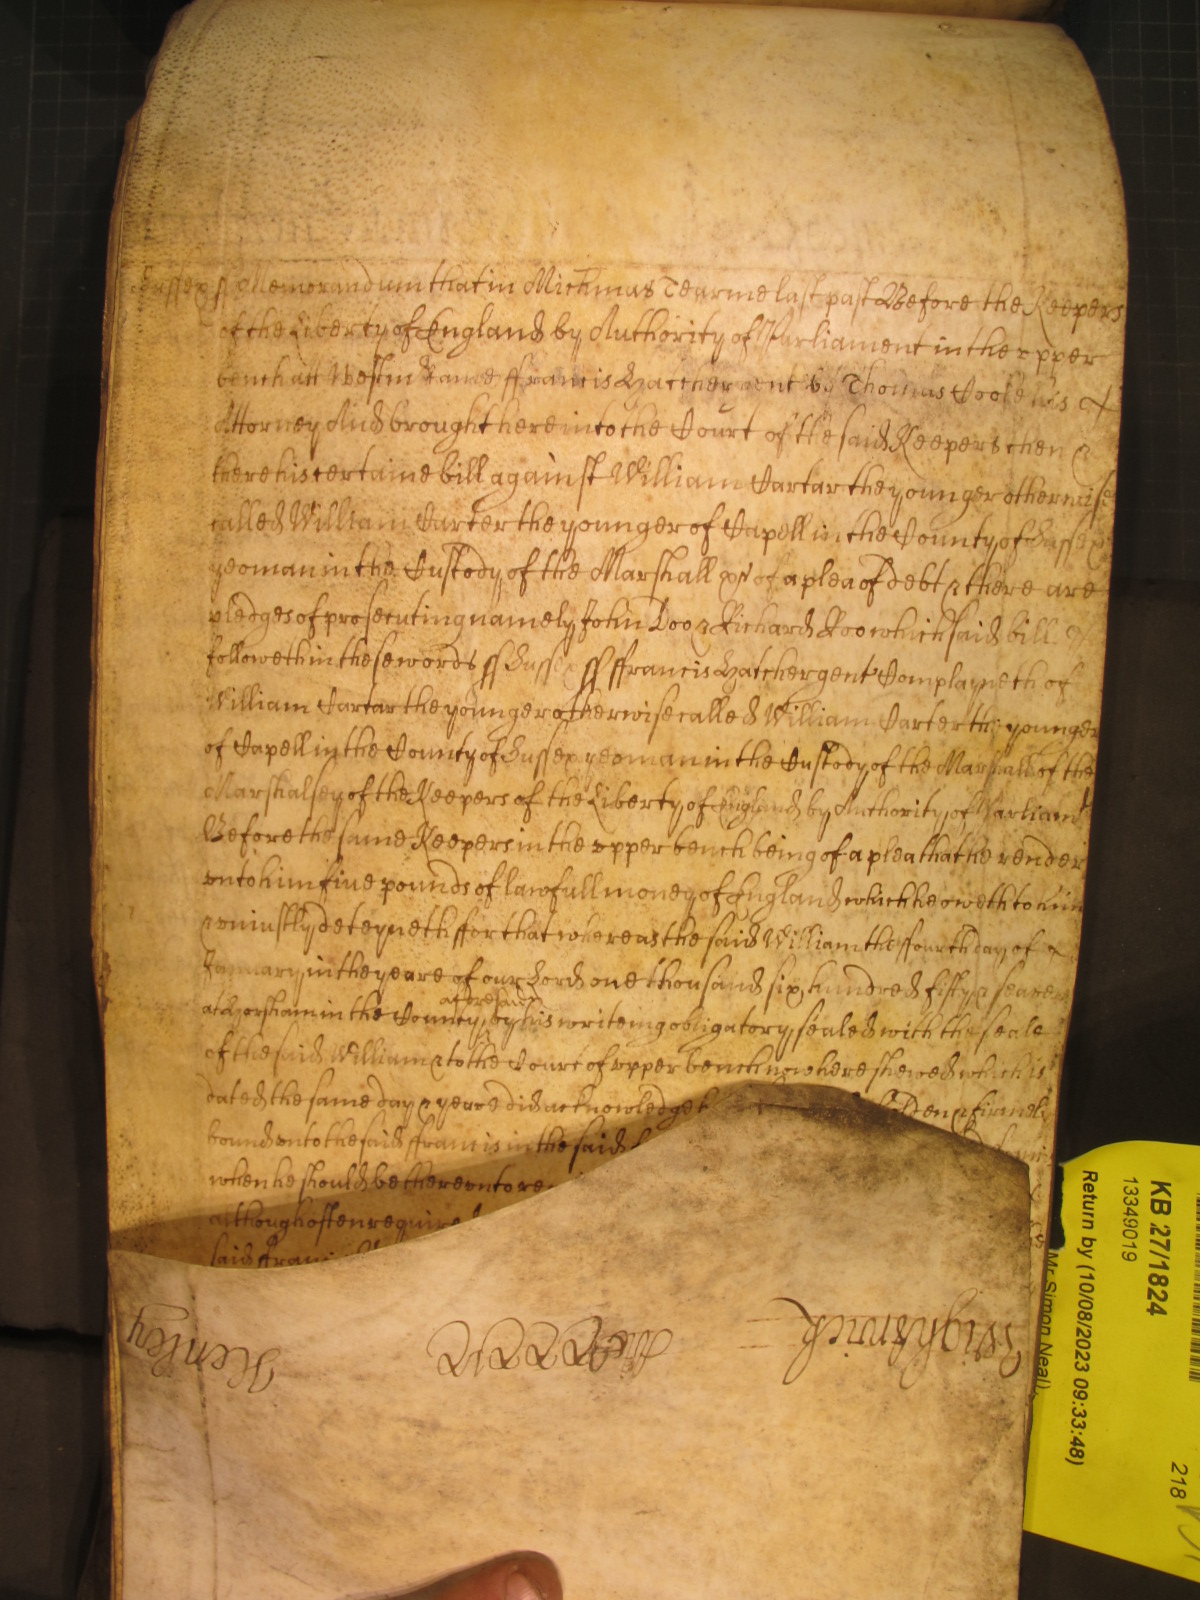 Sussex ss Memorandum that in Michmas Tearme last past Before the Keepers
of the Liberty of England by Authority of Parliament in the vpper
bench att Westm Came ffrancis Hatcher gent by Thomas Coole his
Attorney And brought here into the Court of the said Keepers then &
there his certaine bill against William Cartar the younger otherwise
called William Carter the younger of Capell in the County of Sussex
yeoman in the Custody of the Marshall &c of a plea of debt & there are
pledges of prosecuting namely John Doo & Richard Roo which said bill
followeth in these words ss Sussex ss ffrancis Hatcher gent Complayneth of
William Cartar the younger otherwise called William Carter the younger
of Capell in the County of Sussex yeoman in the Custody of the Marshall of the
Marshalsey of the Keepers of the Liberty of England by Authority of Parliamt
Before the same Keepers in the vpper bench being of a plea that he render
vnto him five pounds of lawfull money of England which he oweth to him
& vniustly deteyneth ffor that whereas the said William the ffourth day of
January in the yeare of our Lord one thousand six hundred fifty & seaven
at Horsham in the County aforesaid by his writeing obligatory sealed with the seale
of the said William & to the Court of vpper bench now here shewed which is
dated the same day & yeare did acknowledge himselfe to be holden & firmely
bound vnto the said ffrancis in the said
when he should be therevnto re
although often require
said ffranci
Wightwick
Henley
KB 27/1824
13349019
Return by (10/08/2023 09:33:48)
Mr Simon Neal)
218